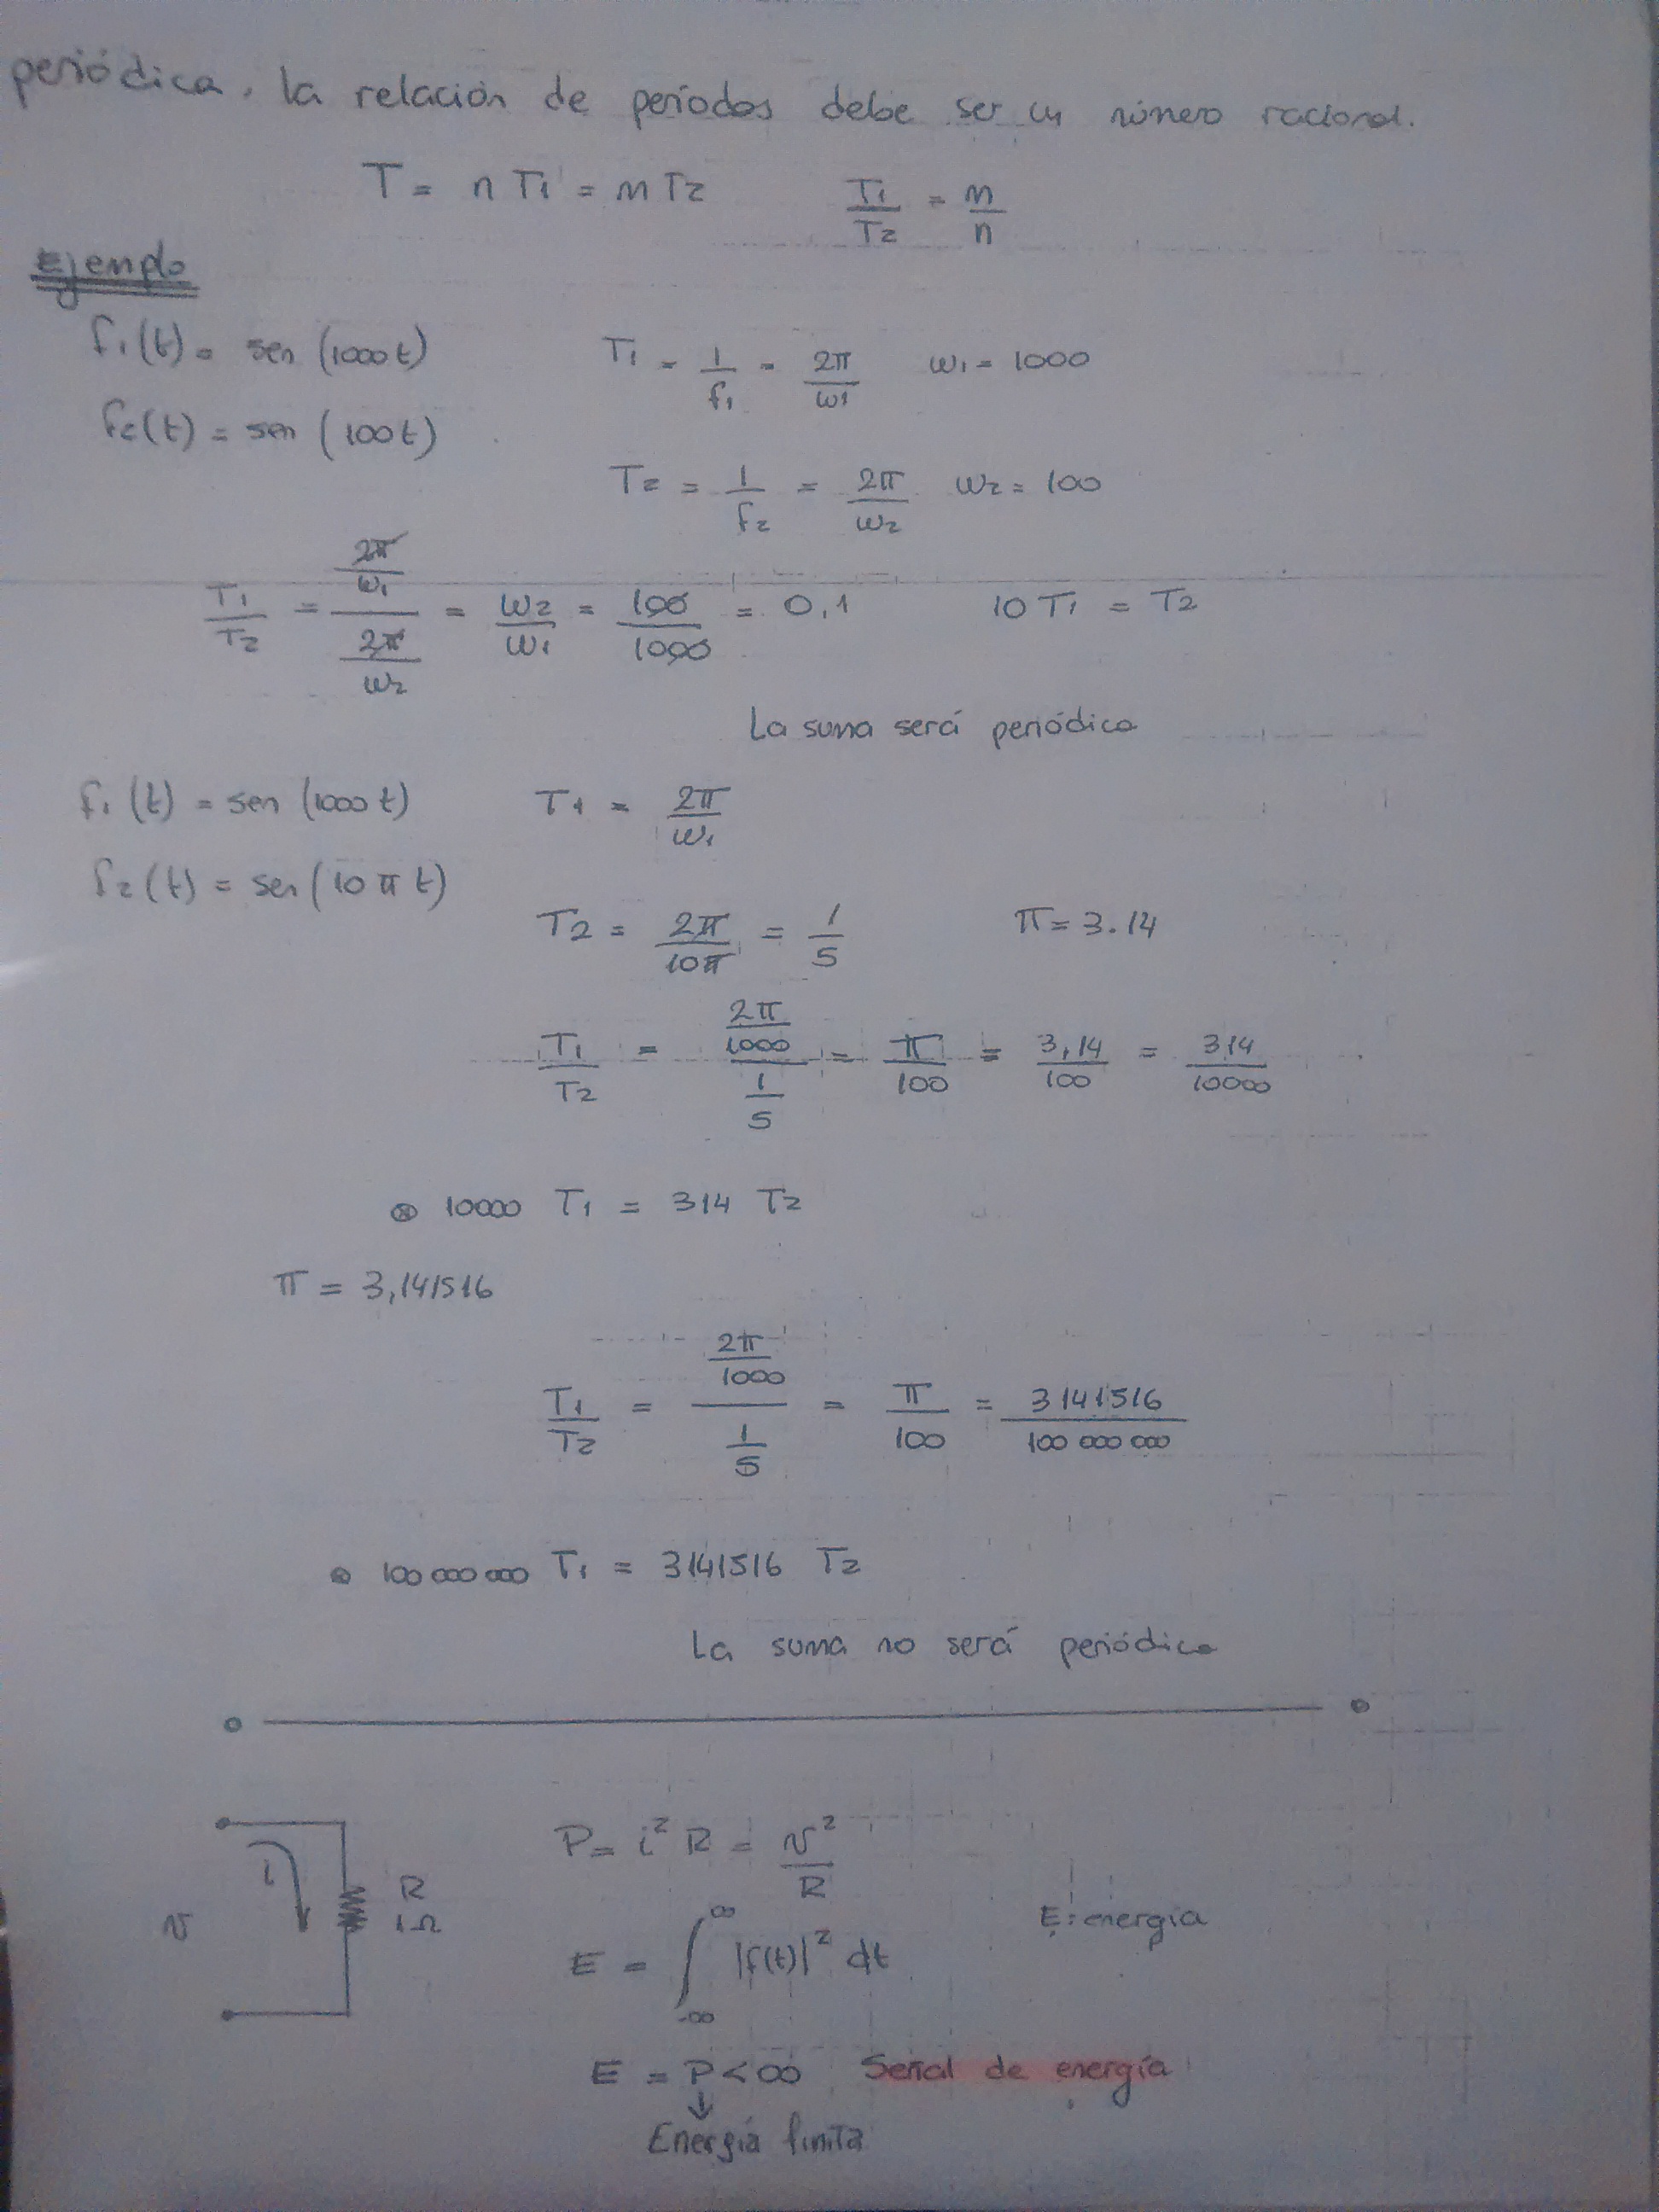 periódica, la relación de períodos debe ser un número racional.
T = n T1 = m T2    T1/T2 = m/n
Ejemplo
f1(t) = sen (1000t)    T1 = 1/f1 = 2π/ω1    ω1 = 1000
f2(t) = sen (100t)
T2 = 1/f2 = 2π/ω2    ω2 = 100
T1/T2 = (2π/ω1)/(2π/ω2) = ω2/ω1 = 100/1000 = 0,1    10 T1 = T2
La suma será periódica
f1(t) = sen (1000t)    T1 = 2π/ω1
f2(t) = sen (10πt)
T2 = 2π/10π = 1/5    π = 3.14
T1/T2 = (2π/1000)/(1/5) = π/100 = 3,14/100 = 314/10000
⊗ 10000 T1 = 314 T2
π = 3,141516
T1/T2 = (2π/1000)/(1/5) = π/100 = 3141516/100 000 000
⊗ 100 000 000 T1 = 3141516 T2
La suma no será periódica
P = i² R = v²/R
i
R
v
1Ω
E = ∫_{-∞}^{∞} |f(t)|² dt    E: energía
E = P < ∞    Señal de energía
↓
Energía finita